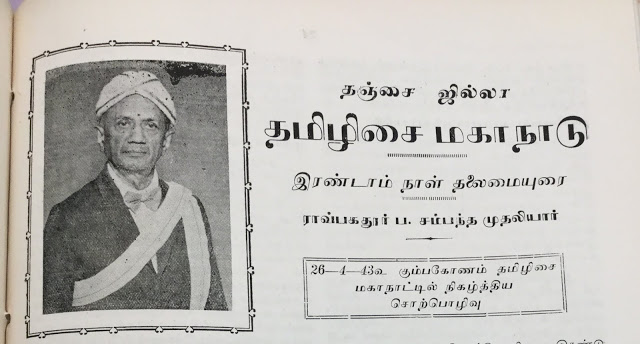 தஞ்சை ஜில்லா
தமிழிசை மகாநாடு
இரண்டாம் நாள் தலைமையுரை
ராவ்பகதூர் ப. சம்பந்த முதலியார்
26—4—43௳ கும்பகோணம் தமிழிசை
மகாநாட்டில் நிகழ்த்திய
சொற்பொழிவு